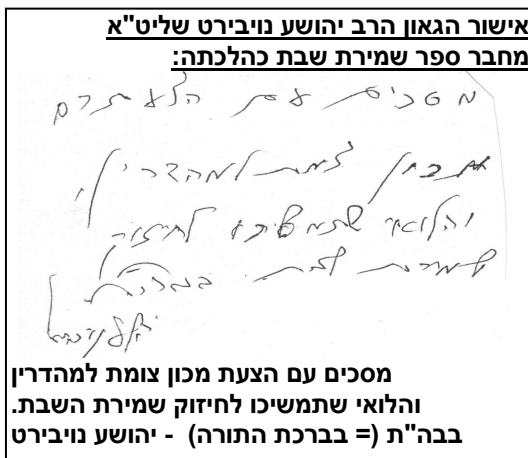 אישור הגאון הרב יהושע נויבירט שליט"א
מחבר ספר שמירת שבת כהלכתה:
מסכים עם
מכון צמת למהדרין,
והלואי שתמשיכו לחיזוק
שמירת שבת
מסכים עם הצעת מכון צומת למהדרין
והלואי שתמשיכו לחיזוק שמירת השבת.
בבה"ת (= בברכת התורה) - יהושע נויבירט